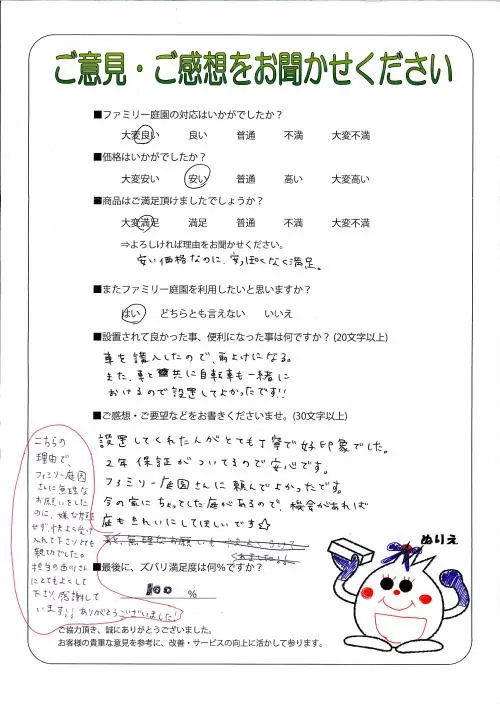 ご意見・ご感想をお聞かせください
■ファミリー庭園の対応はいかがでしたか？
大変良い 良い 普通 不満 大変不満
■価格はいかがでしたか？
大変安い 安い 普通 高い 大変高い
■商品はご満足頂けましたでしょうか？
大変満足 満足 普通 不満 大変不満
⇒よろしければ理由をお聞かせください。
安い価格なのに、安っぽくなく満足。
■またファミリー庭園を利用したいと思いますか？
はい どちらとも言えない いいえ
■設置されて良かった事、便利になった事は何ですか？（20文字以上）
車を購入したので、雨よけになる。
また、車と共に自転車も一緒に
おけるので設置してよかったです!!
■ご感想・ご要望などをお書きくださいませ。（30文字以上）
設置してくれた人がとても丁寧で好印象でした。
2年保証がついてるので安心です。
ファミリー庭園さんに頼んでよかったです。
今の家にちょっとした庭があるので、機会があれば
庭もきれいにしてほしいです☆
こちらの
理由で、
ファミリー庭園
さんに無理な
お願いをした
のに、嫌な顔
せず、快よく受け
入れて下さりとても
親切でした。
担当の
さん
にとてもよくして
下さり、感謝して
います!! ありがとうございました!
■最後に、ズバリ満足度は何％ですか？
100 ％
ぬりえ
ご協力頂き、誠にありがとうございました。
お客様の貴重な意見を参考に、改善・サービスの向上に活かして参ります。